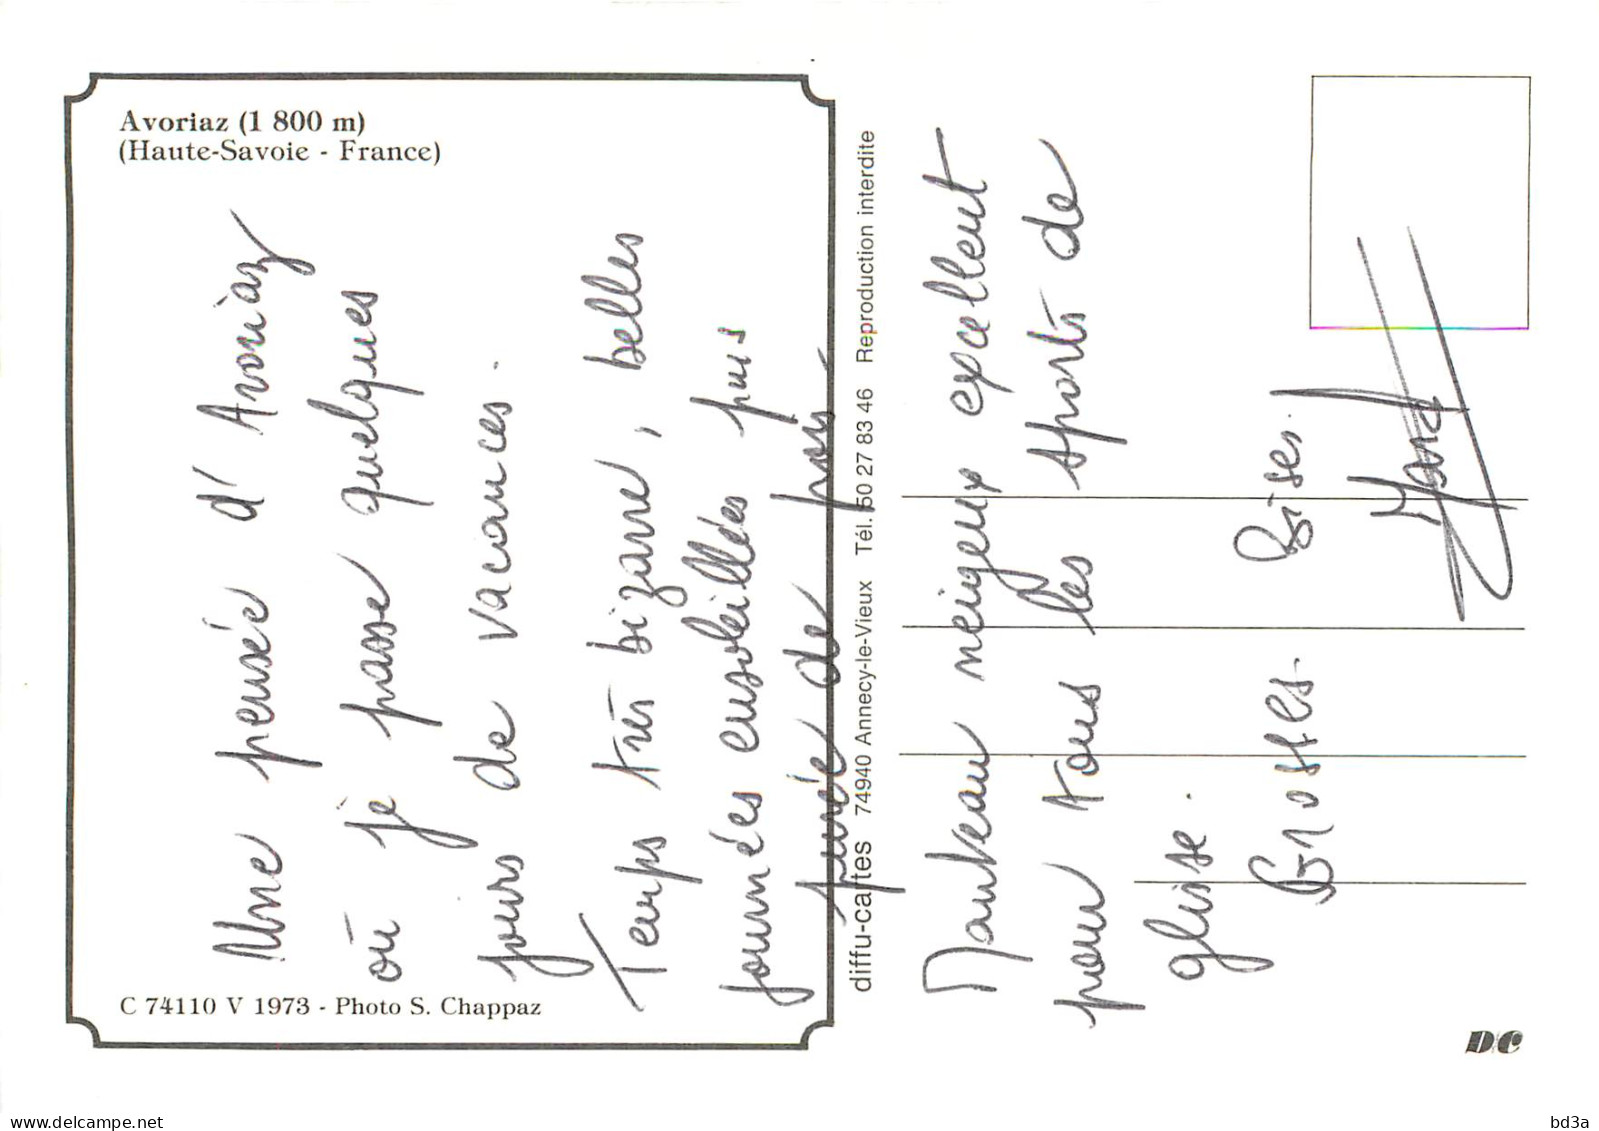 Avoriaz (1 800 m)
(Haute-Savoie - France)
Une pensée d'Avoriaz
où je passe quelques
jours de vacances.
Temps très bizarre, belles
journées ensoleillées puis
purée de pois.
Manteau neigeux excellent
pour tous les sports de
glisse.
Grosses Bises.
C 74110 V 1973 - Photo S. Chappaz
diffu-cartes 74940 Annecy-le-Vieux Tél. 50 27 83 46 Reproduction interdite
D/C
delcampe.net
bd3a